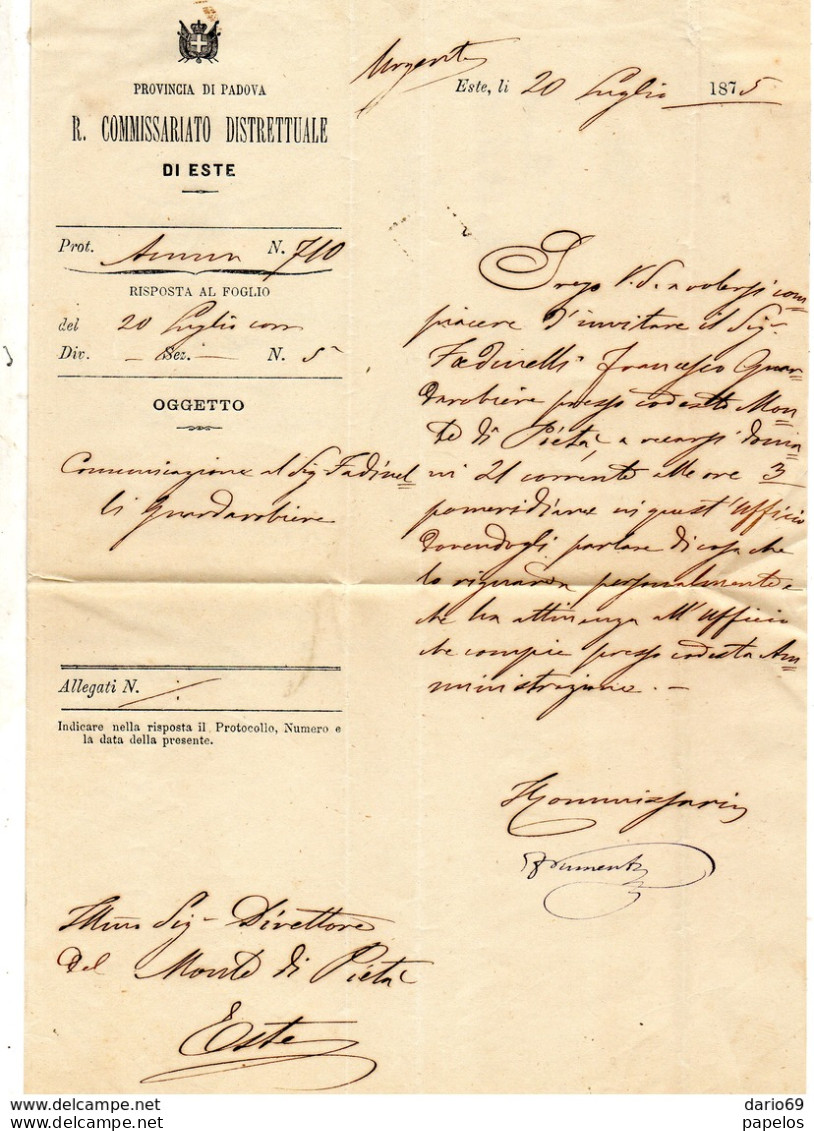 PROVINCIA DI PADOVA
R. COMMISSARIATO DISTRETTUALE
DI ESTE
Prot. N. 710
RISPOSTA AL FOGLIO
del 20 Luglio corr
Div. - Sez. - N. 5
OGGETTO
Comunicazione al Sig Fadinel
li Guardarobiere
Allegati N. /.
Indicare nella risposta il Protocollo, Numero e
la data della presente.
Urgente
Este, li 20 Luglio 1875
Prego V.S. a volersi com
piacere d'invitare il Sig
Fadinelli Francesco Guar
darobiere presso codesto Mon
te di Pietà, a recarsi doma
ni 21 corrente alle ore 3
pomeridiane in quest'Ufficio
dovendogli parlare di cosa che
lo riguarda personalmente e
che ha attinenza all'Ufficio
che compie presso codesta Am
ministrazione. -
Il Commissario
Illmo Sig Direttore
del Monte di Pietà
Este
dario69
https://www.delcampe.net
papelos